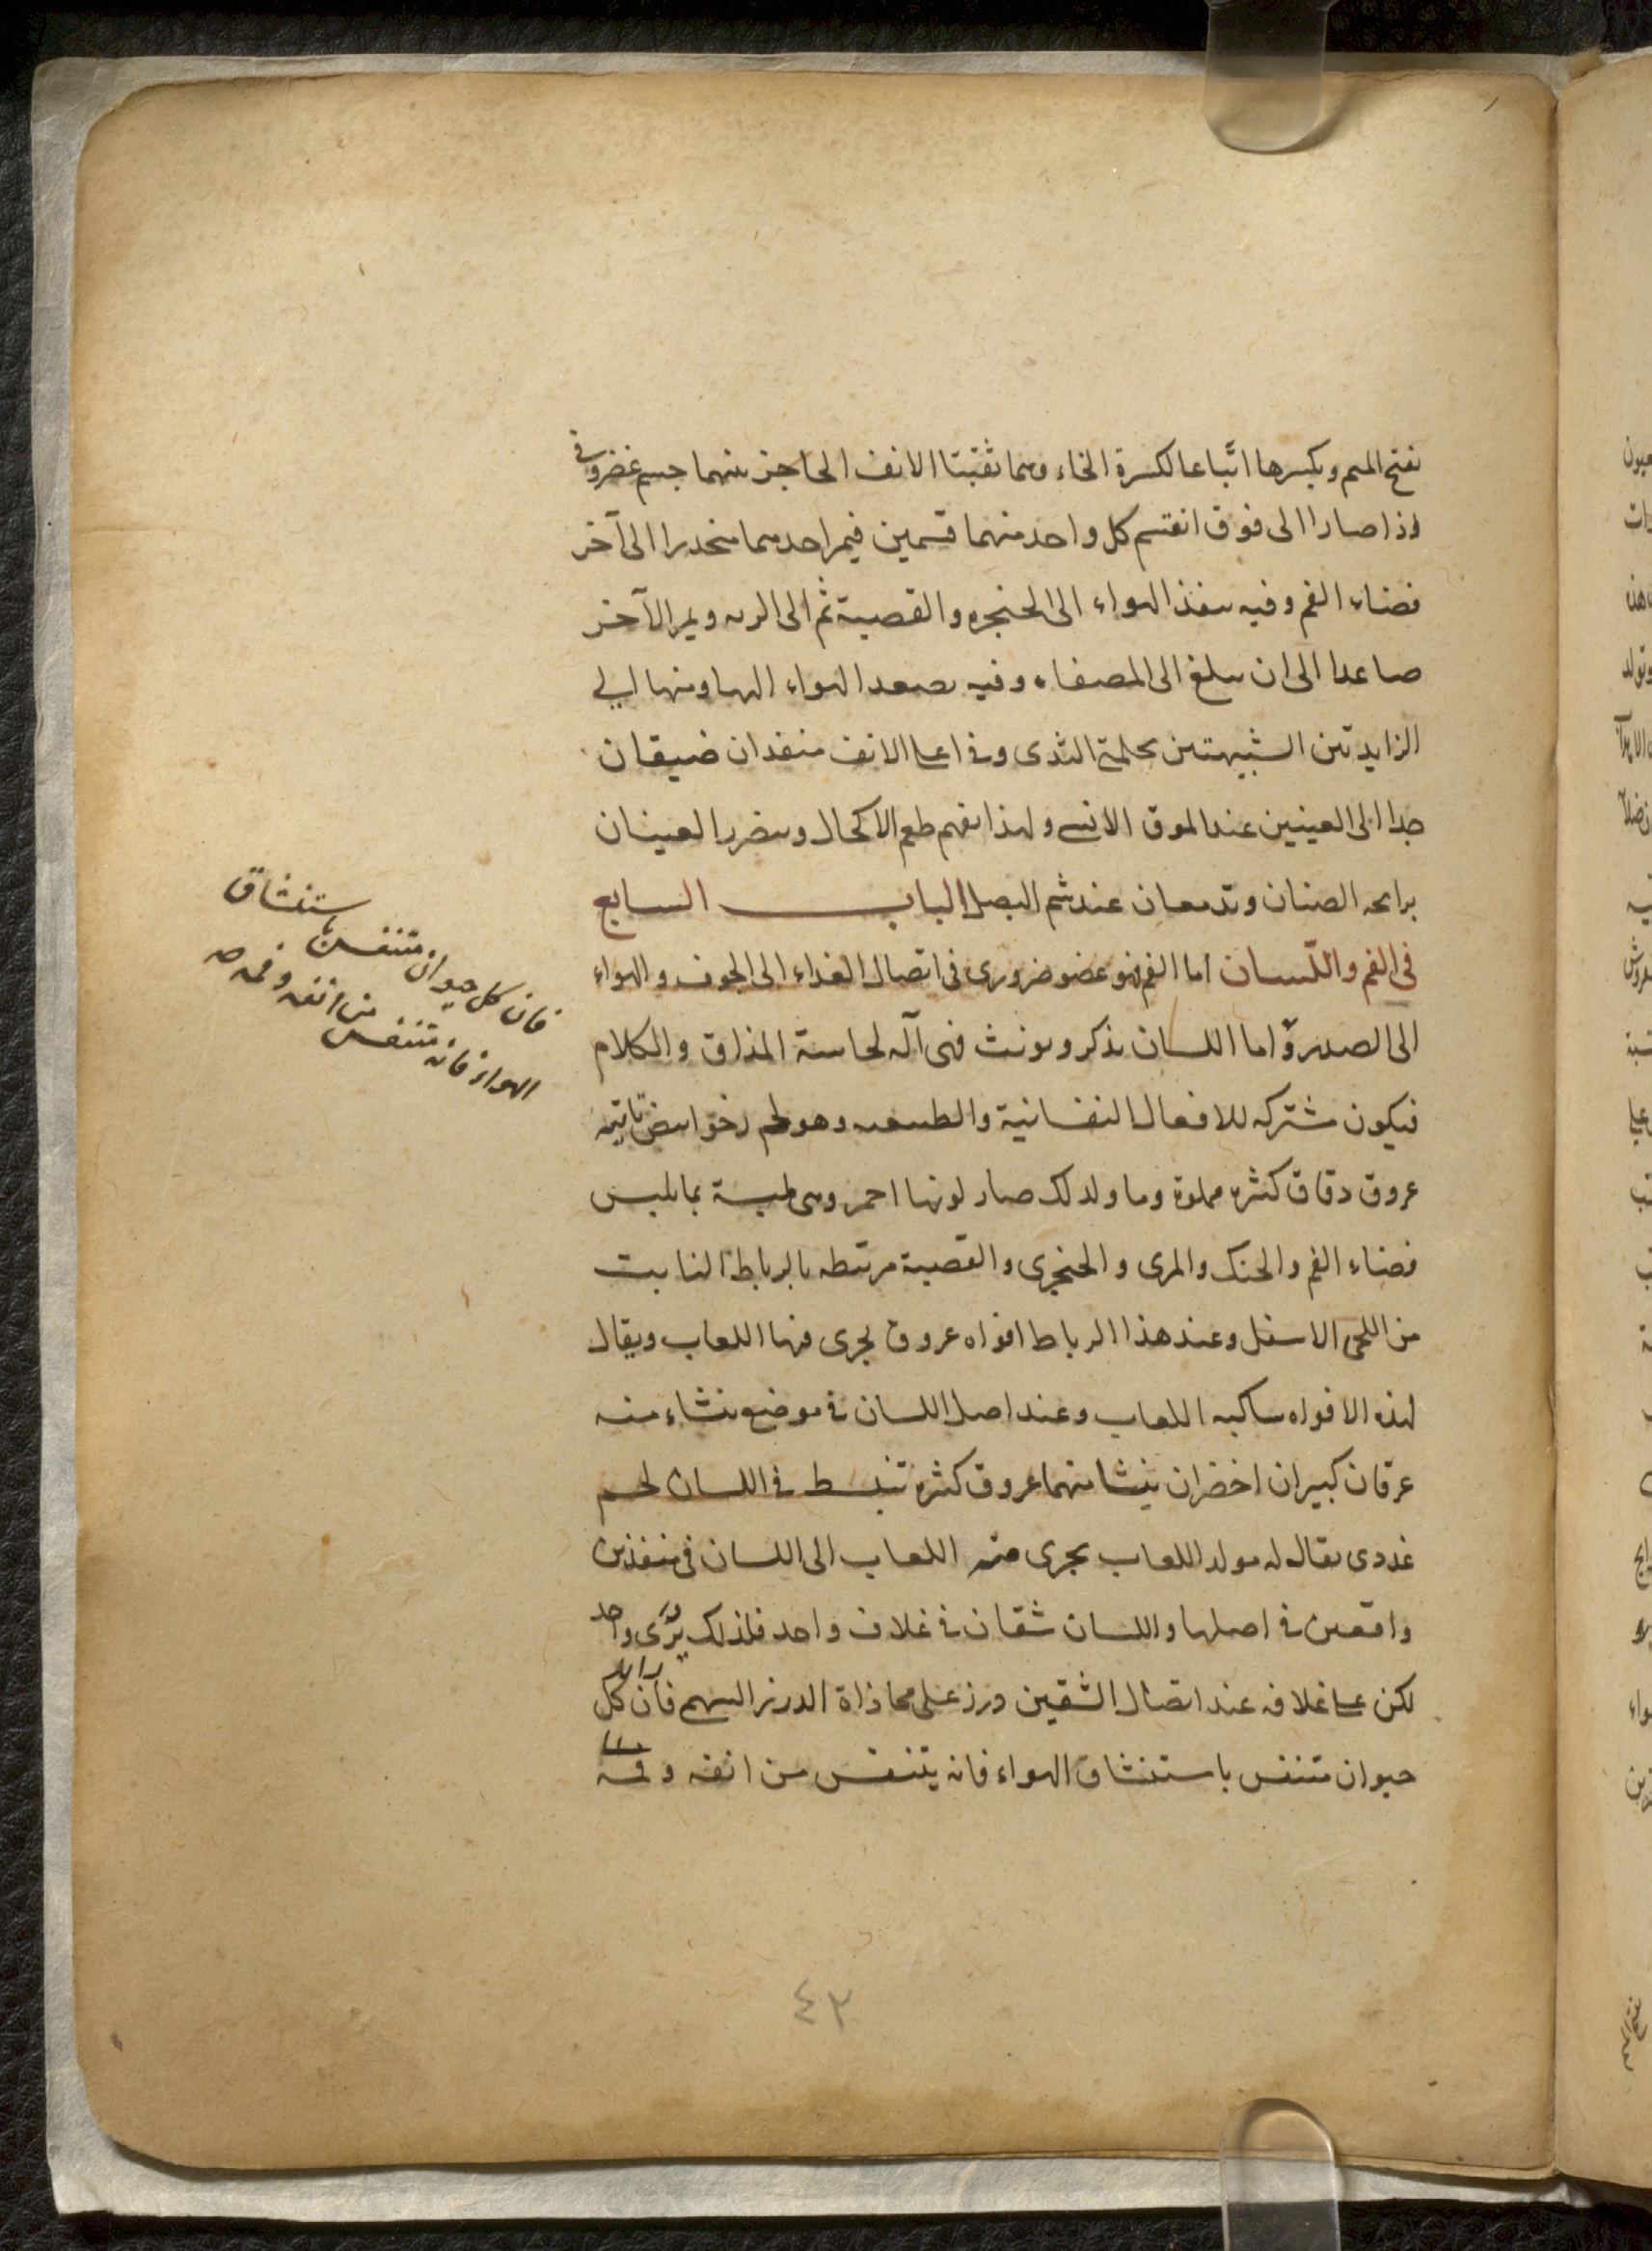 بفتح الميم وبكسرها اتّباعا لكسرة الخاء وهما ثقبتا الانف الحاجز بينهما جسم غضروفى
اذا صارا الى فوق انقسم كل واحد منهما قسمين فيمر احدهما منحدرا الى آخر
فضاء الفم وفيه ينفذ الهواء الى الحنجره والقصبة ثم الى الريه ويمر الآخر
صاعدا الى ان يبلغ الى المصفاه وفيه يصعد الهواء اليها ومنها الى
الزايدتين الشبيهتين بحلمة الثدى وفى اعلا الانف منفذان ضيقان
جدا الى العينين عند الموق الانسى ولهذا يفهم طعم الاكحال ويتضرر العينان
برايحه الصنان وتدمعان عند شم البصل الباب السابع
فى الفم واللّسان اما الفم فهو عضو ضرورى فى اتصال الغداء الى الجوف والهواء
الى الصدر واما اللسان يذكر ويونث فهى آله لحاسة المذاق والكلام
فيكون مشتركه للافعال النفسانية والطبيعيه وهو لحم رخو ابيض تاتيه
عروق دقاق كثيره مملوة دما ولذلك صار لونها احمر وهى ملبسة بما يلبس
فضاء الفم والحنك والمرى والحنجرى والقصبة مرتبطه بالرباط النابت
من اللحى الاسفل وعند هذا الرباط افواه عروق يجرى فيها اللعاب ويقال
لهذه الافواه ساكبه اللعاب وعند اصل اللسان فى موضع ينشاء منه
عرقان كبيران اخضران ينشا منهما عروق كثيره تنبسط فى اللسان لحم
غددى يقال له مولد اللعاب يجرى منه اللعاب الى اللسان فى منفذين
واقعين فى اصلها واللسان شقان فى غلاف واحد فلذلك يُرَى واحد
لكن على غلافه عند اتصال الشقين درز على محاذاة الدرز السهم فان كل
حيوان متنفس باستنشاق الهواء فانه يتنفس من انفه وفمه
فان كل حيوان متنفس باستنشاق
الهواء فانه يتنفس من انفه وفمه صح
٤٢